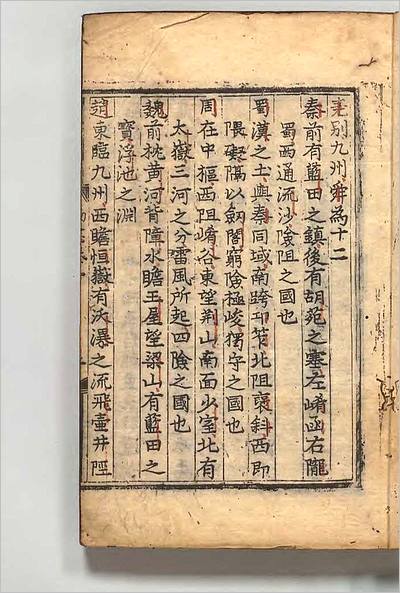 堯別九州舜為十二
秦前有藍田之鎮後有胡苑之塞左崤函右隴
蜀西通流沙險阻之國也
蜀漢之士與秦同域南跨邛笮北阻褒斜西即
隈礙隔以劍閣窮險極峻獨守之國也
周在中樞西阻崤谷東望荊山南面少室北有
太嶽三河之分雷風所起四險之國也
魏前枕黃河背障水瞻王屋望梁山有藍田之
寶浮池之淵
趙東臨九州西瞻恒嶽有沃瀑之流飛壺井陘